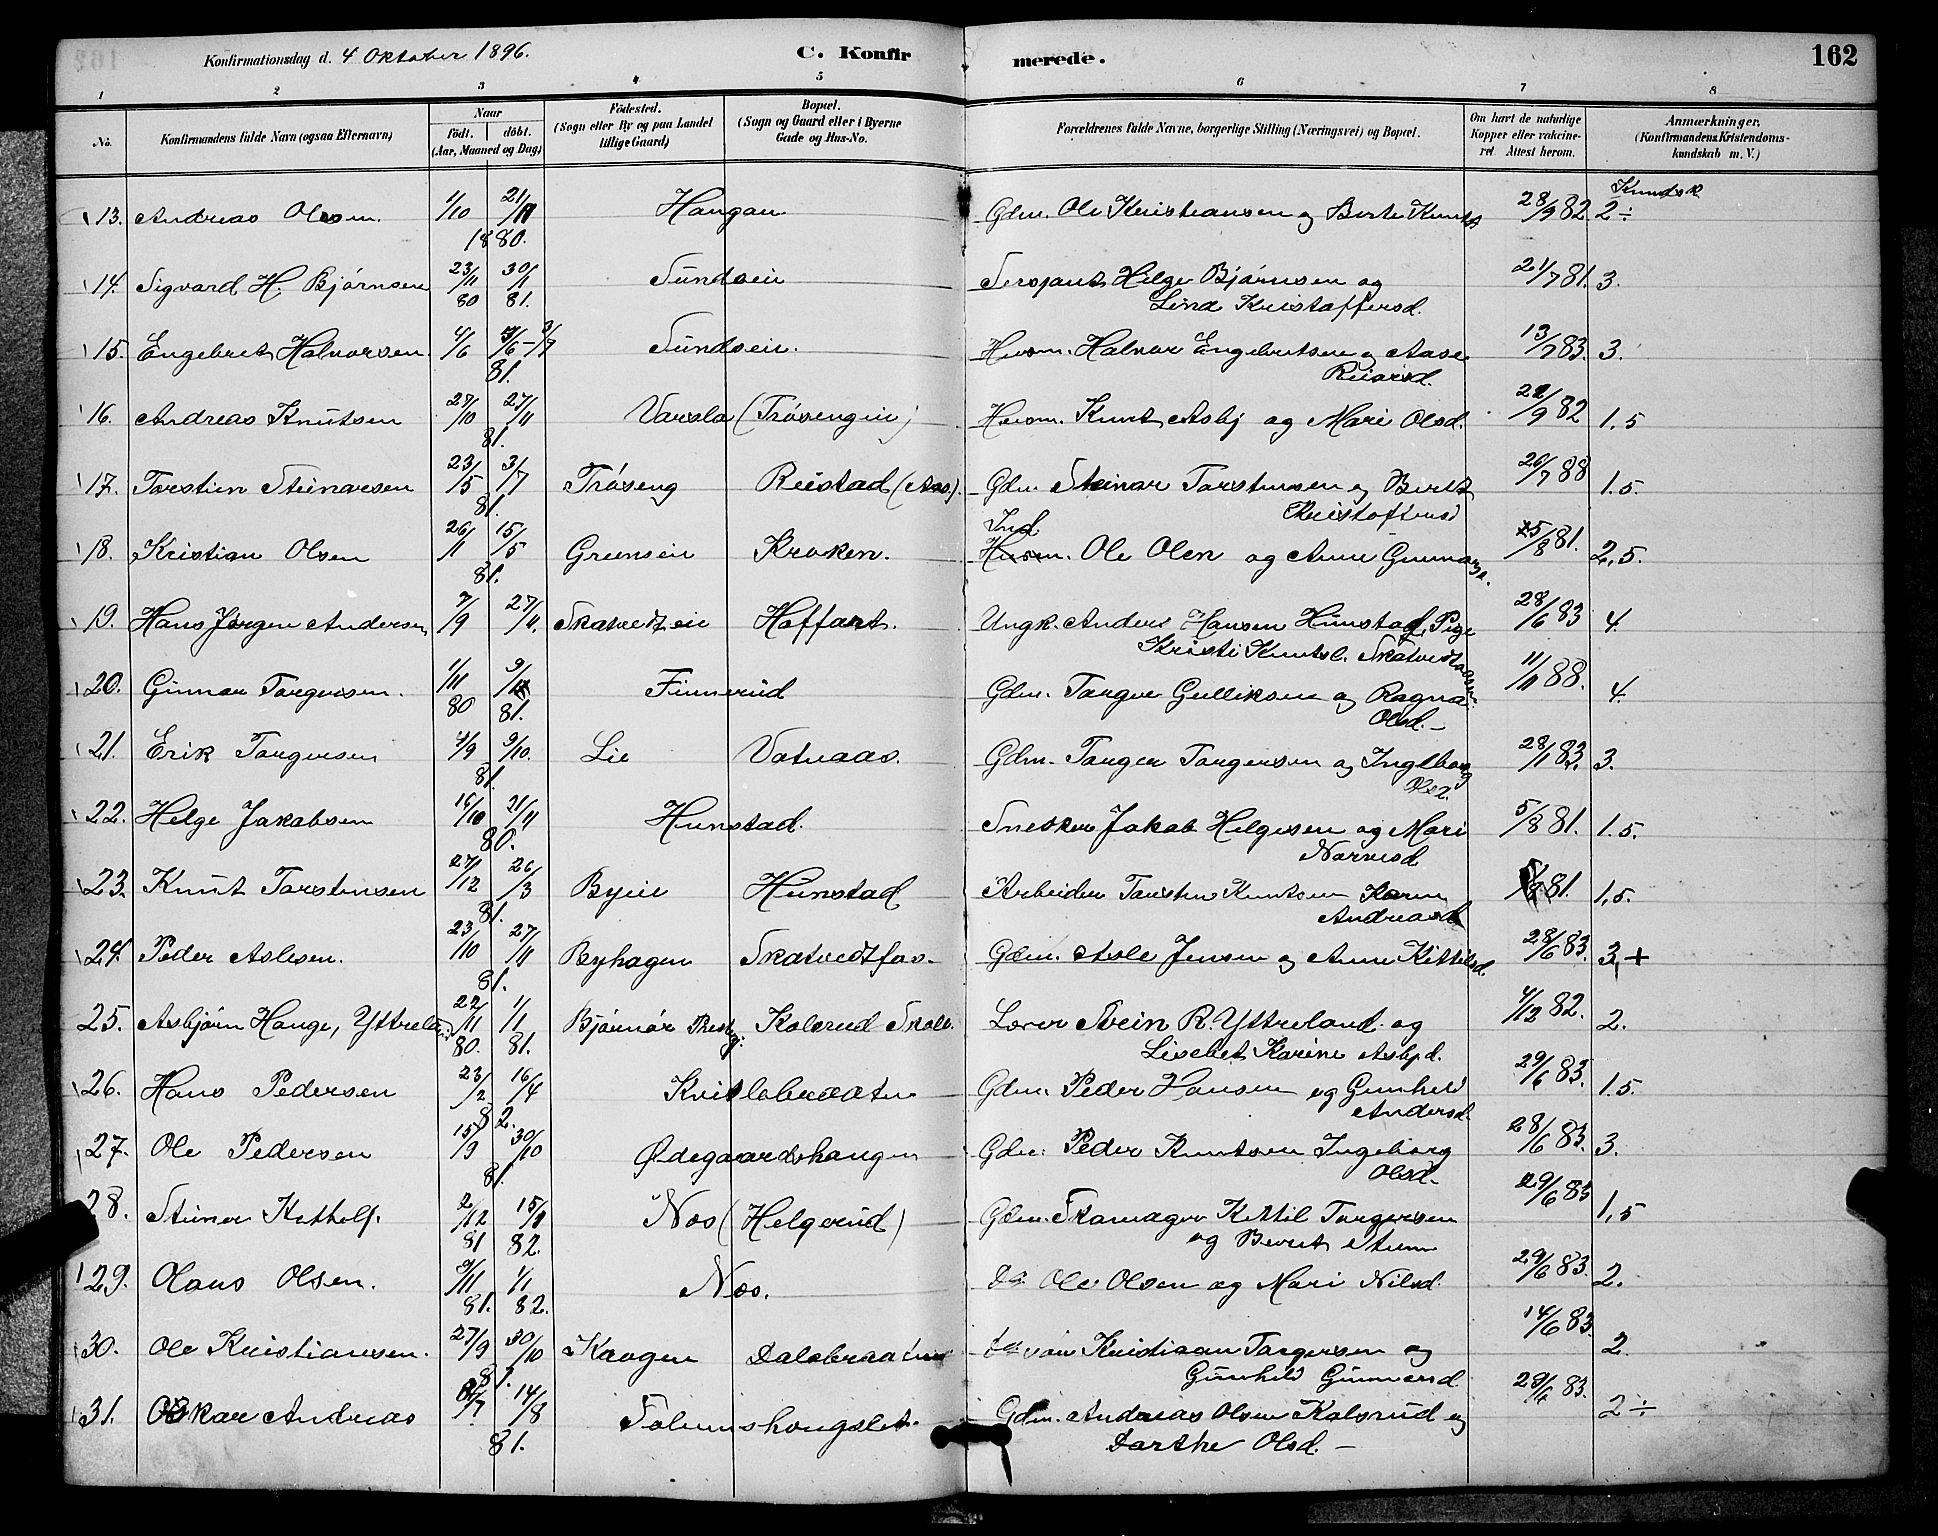 Konfirmationsdag d. 4 Oktober 1896. C. Konfirmerede. 162
1 2 3 4 5 6 7 8
No. Konfirmandens fulde Navn (ogsaa Efternavn) Naar födt. döbt. (Aar, Maaned og Dag) Födested. (Sogn eller By og paa Landet tillige Gaard) Bopæl. (Sogn og Gaard eller i Byerne Gade og Hus-No. Forældrenes fulde Navne, borgerlige Stilling (Næringsvei) og Bopæl. Om havt de naturlige Kopper eller vakcineret. Attest herom. Anmærkninger, (Konfirmandens Kristendomskundskab m. V.)
Kundsk
13. Andreas Olsen. 1/10 21/11 1880. Haugan Gdm. Ole Kristiansen og Berte Knuts 28/9 82. 2÷
14. Sigvard H. Bjørnsen 23/11 80 30/1 81. Sundseie Sersjant Helge Bjørnsen og Lina Kristoffersd. 21/7 81. 3.
15. Engebret Halvorsen 4/6 81. Sundseie. Husm. Halvor Engebretsen og Aase Reiarsd. 13/7 83. 3.
16. Andreas Knutsen 27/10 27/11 81. Varsla (Trøsengeie) Husm. Knut Asbj og Mari Olsd. 22/9 82 1.5
17. Torstein Steinarsen 23/5 3/7 81. Trøseng Reistad (Aas). Gdm. Steinar Torstensen og Berte Kristoffersd 26/7 88 1.5.
18. Kristian Olsen 26/1 15/5 81. Grunseie Kroken. Ind. Ole Olen og Anne Gunnarsd. 25/8 81. 2,5.
19. Hans Jørgen Andersen 7/9 27/11. Skatvedteie Hoffart. Ungk. Anders Hansen Hunstad, Pige Kristi Knutsd. Skatvedt 28/6 83 4.
20. Gunnar Torgersen. 1/11 80 81. Finnerud Gdm. Torger Gulliksen og Ragna Olsd. 11/11 88. 4.
21. Erik Torgersen 4/9 9/10. 81. Lie Votnaas. Gdm. Torger Torgersen og Ingeborg Olsd. 28/1 83. 3.
22. Helge Jakobsen 16/10 21/11 80. Hunstad. Snedker Jakob Helgesen og Mari Narvesd 5/8 81. 1.5.
23. Knut Torstensen 27/12 26/3 81. Byeie Hunstad Arbeider Torsten Knutsen Karen Andreasd 81. 1,5.
24. Peder Aslesen. 23/10 27/11 81. Byhagen Skatvedtfos. Gdm. Asle Jensen og Anne Kittilsd. 28/6 83. 3,+
25. Asbjørn Hauge, Yttreland 22/11 80. 1/1 81. Bjørnør Prestg: Kolsrud Skole. Lærer Svein R. Yttreland og Lisebet Karine Asbjd. 4/12 82. 2.
26. Hans Pedersen 23/2 16/4 82. Kvislebraaten Gdm. Peder Hansen og Gunhild Andersd. 29/6 83. 1.5.
27. Ole Pedersen 15/9 30/10 81. Ødegaardshaugen Gdm. Peder Knutsen Ingeborg Olsd. 28/6 83. 3.
28. Steiner Kittilsf. 2/12 81 15/1 82. Næs (Helgerud) Gdm. Skomager Kittil Torgersen og Berit Stein 29/6 83 1,5
29. Olaus Olsen. 9/11 81. 1/1 82. Næs. do Ole Olsen og Mari Nilsd. 29/6 83. 2.
30. Ole Kristiansen. 27/9 30/10 81. Kaagen Dalsbraaten Kristian Torgersen og Gunhild Gunnersd. 14/6 83. 2.
31. Oskar Andreas 14/8 81. Folumshougslet. Gdm. Andreas Olsen Kolsrud og Dorthe Olsd. 29/6 83. 2÷